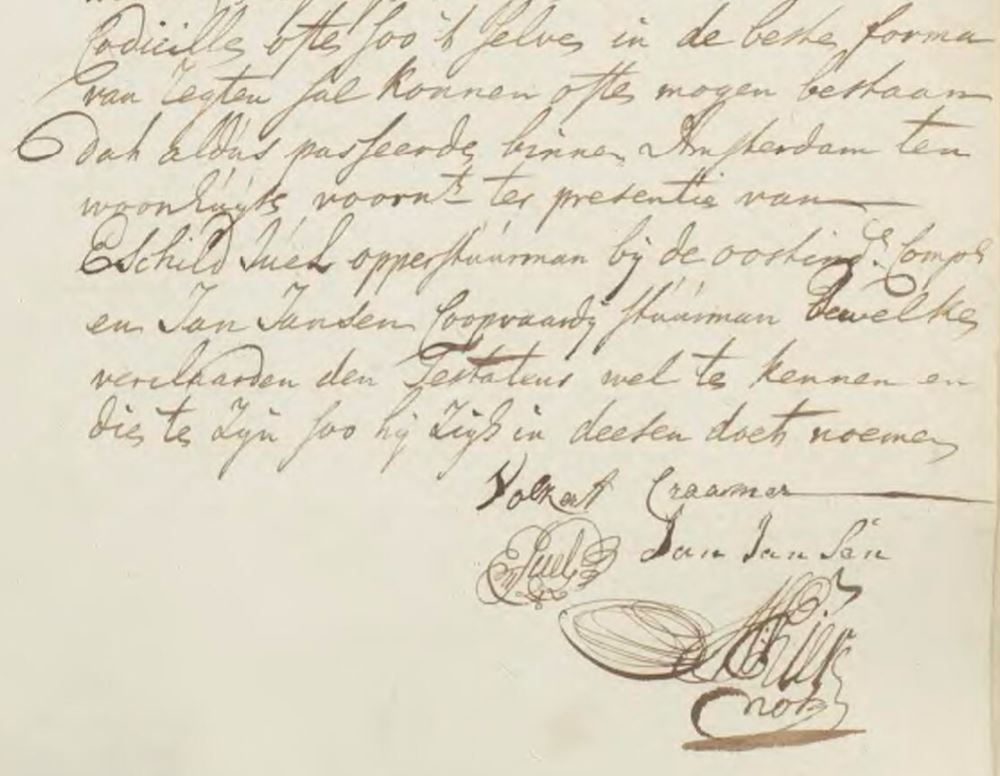 Codicille ofte soo 't selve in de beste forma
van Regten sal konnen ofte mogen bestaan
dat aldus passeerde binnen Amsterdam ten
woonhuÿse voornt. ter presentie van
Eschild Juel opperstuurman bÿ de oostindse. Comp:
en Jan Jansen Coopvaardÿ stuurman Dewelke
verclaarden den Testateur wel te kennen en
die te zÿn soo hÿ zigh in deesen doet noemen
Volkert Craamer
E Juel Jan Jan Sen
not